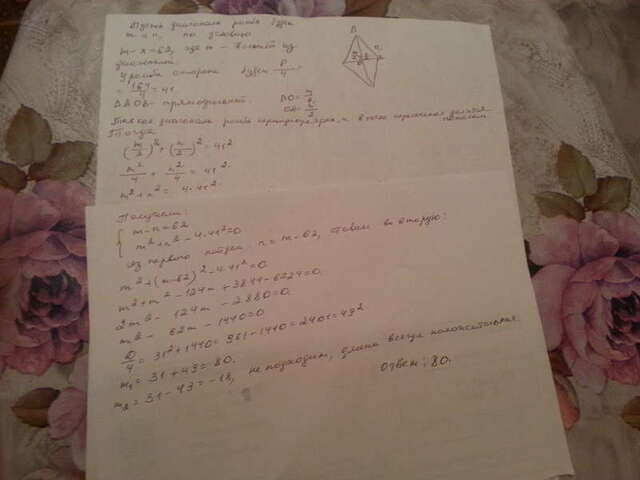 Пусть диагонали ромба будут
m и n, по условию
m - n = 62, где m - больший из
диагоналей.
У ромба сторона будет P/4
= 164/4 = 41
ΔAOB - прямоугольный.
AO = n/2
OB = m/2
Так как диагонали ромба перпендикулярны и в точке пересечения делятся
пополам.
Тогда
(m/2)² + (n/2)² = 41²
m²/4 + n²/4 = 41²
m² + n² = 4·41²
B
Получаем:
{ m - n = 62
m² + n² - 4·41² = 0
Из первого найдем n = m - 62, ставим во вторую:
m² + (m - 62)² - 4·41² = 0.
m² + m² - 124m + 3844 - 6724 = 0.
2m² - 124m - 2880 = 0.
m² - 62m - 1440 = 0
D/4 = 31² + 1440 = 961 - 1440 = 2401 = 49²
m₁ = 31 + 49 = 80.
m₂ = 31 - 49 = -18, не подходит, длина всегда положительная.
Ответ: 80.